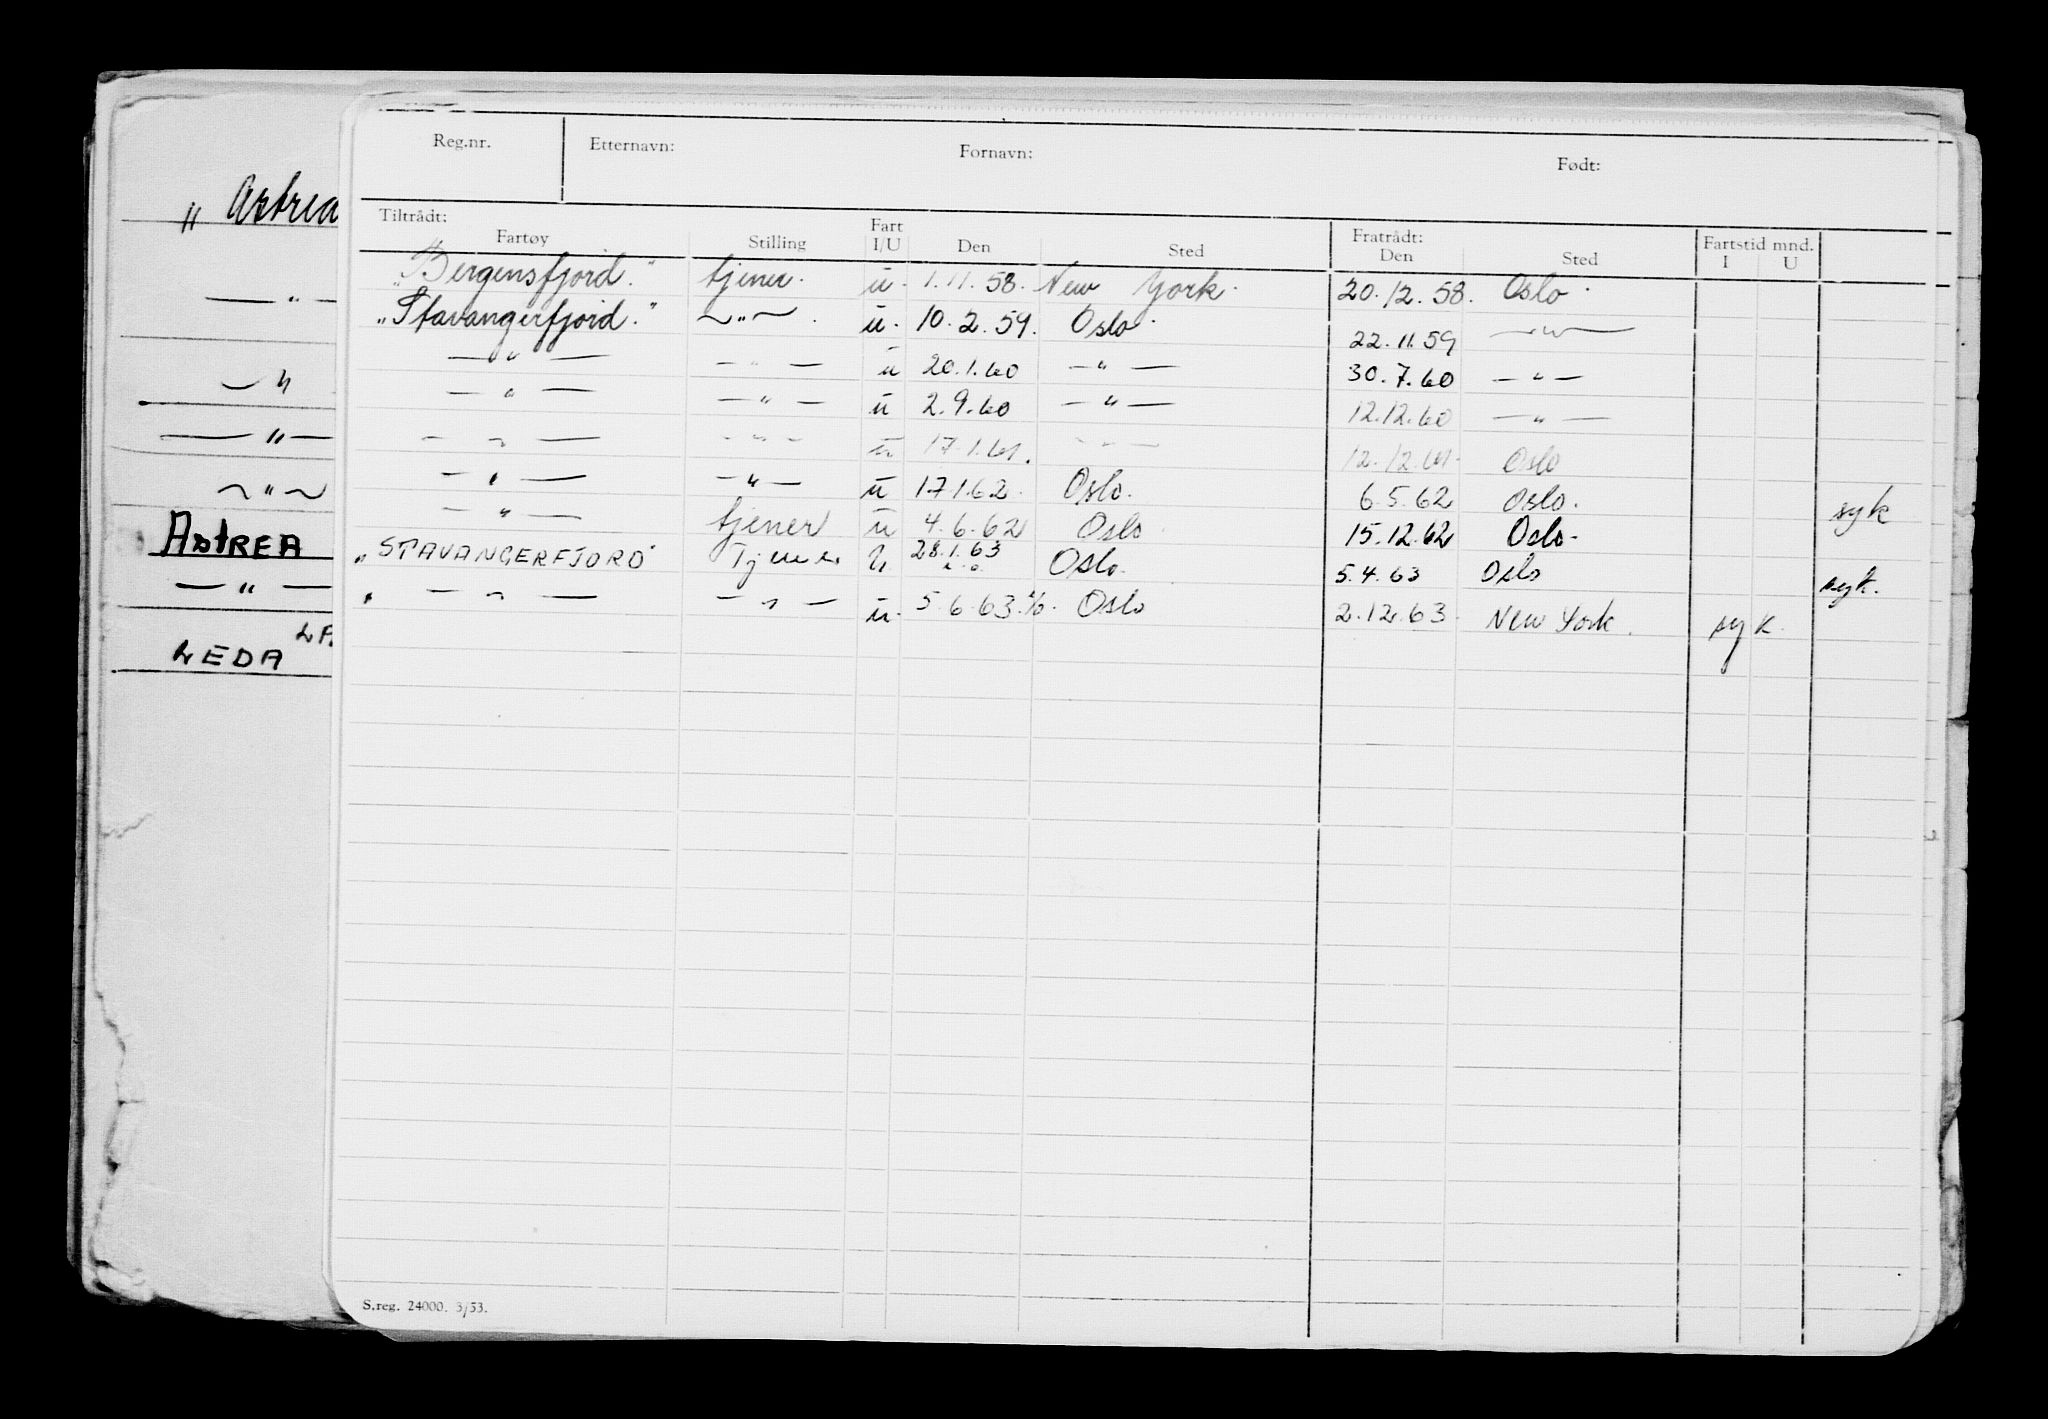 " Astrea
— " —
— " —
— " —
— " —
ASTREA
— " —
LEDA
Reg.nr. Etternavn: Fornavn: Født:
Tiltrådt: Fart Fratrådt: Fartstid mnd.
Fartøy Stilling I/U Den Sted Den Sted I U
"Bergensfjord." tjener. u. 1.11.58. New York. 20.12.58. Oslo.
"Stavangerfjord." — " — . u. 10.2.59. Oslo. 22.11.59 — " —
— " — — " — u 20.1.60 — " — 30.7.60 — " —
— " — — " — u 2.9.60 — " — 12.12.60 — " —
— " — — " — u 17.1.61. — " — 12.12.61. Oslo
— " — — " — u 17.1.62. Oslo. 6.5.62 Oslo. syk
— " — tjener u 4.6.62 Oslo. 15.12.62 Oslo.
"STAVANGERFJORD" Tjener U 28.1.63 Oslo. 5.4.63 Oslo syk.
" — " — — " — u. 5.6.63. Oslo 2.12.63. New York. syk.
S.reg. 24000. 3/53.